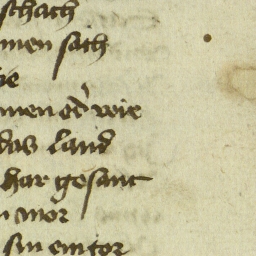 schach
men sach
ye
men er wie
das land
har gesant
n mor
sin em tor